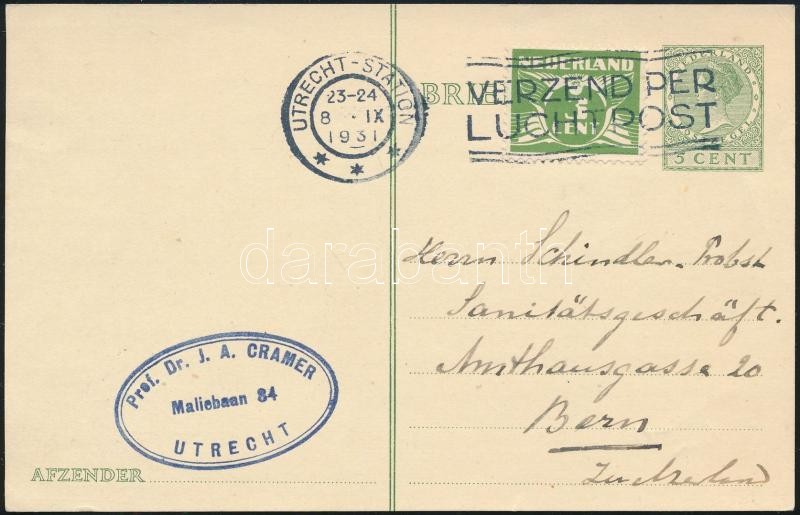 UTRECHT-STATION
23-24
8 IX
1931
NEDERLAND
CENT
VERZEND PER
LUCHTPOST
NEDERLAND
5 CENT
Herrn Schindler-Probst
Sanitätsgeschäft.
Amthausgasse 20
Bern
Prof. Dr. J. A. CRAMER
Maliebaan 84
UTRECHT
AFZENDER
darabanth